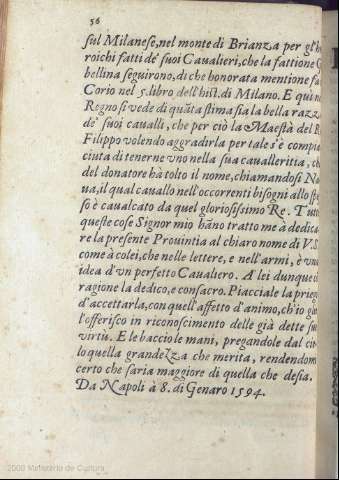 56
sul Milanese, nel monte di Brianza per gl'h
roichi fatti de' suoi Caualieri, che la fattione G
bellina seguirono, di che honorata mentione fa
Corio nel 5. libro dell'hist. di Milano. E quà n
Regno si vede di quãta stima sia la bella razz
de' suoi caualli, che per ciò la Maestà del R
Filippo volendo aggradirla per tale s'e compia
ciuta di tenerne vno nella sua cauallleritia, ch
del donatore hà tolto il nome, chiamandosi No
ua, il qual cauallo nell'occorrenti bisogni allo ste
so è caualcato da quel gloriosissimo Re. Tutt
queste cose Signor mio hãno tratto me à dedica
re la presente Prouintia al chiaro nome di V.S
come à colei, che nelle lettere, e nell'armi, è vn
idea d'vn perfetto Caualiero. A lei dunque c
ragione la dedico, e consacro. Piacciale la prieg
d'accettarla, con quell'affetto d'animo, ch'io gli
l'offerisco in riconoscimento delle già dette su
virtù. E le bacciole mani, pregandole dal cie
lo quella grandezza che merita, rendendom
certo che saria maggiore di quella che desia.
Da Napoli à 8. di Genaro 1594.
2009 Ministerio de Cultura